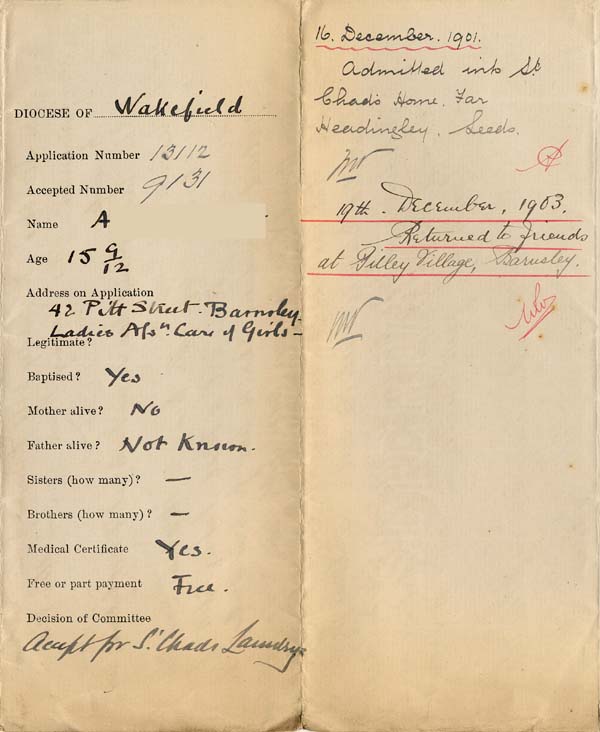 DIOCESE OF Wakefield
Application Number 13112
Accepted Number 9131
Name A
Age 15 9/12
Address on Application
42 Pitt Street - Barnsley
Ladies Assn. Care of Girls -
Legitimate?
Baptised? Yes
Mother alive? No
Father alive? Not Known.
Sisters (how many)? —
Brothers (how many)? —
Medical Certificate Yes.
Free or part payment Free.
Decision of Committee
Accept for St. Chads Laundry
16. December. 1901.
Admitted into St.
Chad's Home. Far
Headingley. Leeds.
19th. December, 1903.
Returned to friends
at Pilley Village, Barnsley.